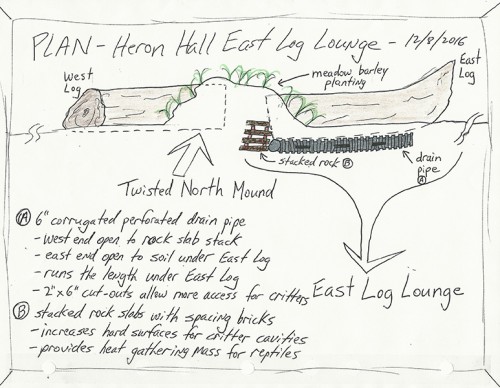 PLAN - Heron Hall East Log Lounge - 12/8/2016
West Log
East Log
meadow barley
planting
stacked rock B
drain
pipe
A
Twisted North Mound
A 6" corrugated perforated drain pipe
- west end open to rock slab stack
- east end open to soil under East Log
- runs the length under East Log
- 2"x6" cut-outs allow more access for critters
East Log Lounge
B stacked rock slabs with spacing bricks
- increases hard surfaces for critter cavities
- provides heat gathering mass for reptiles